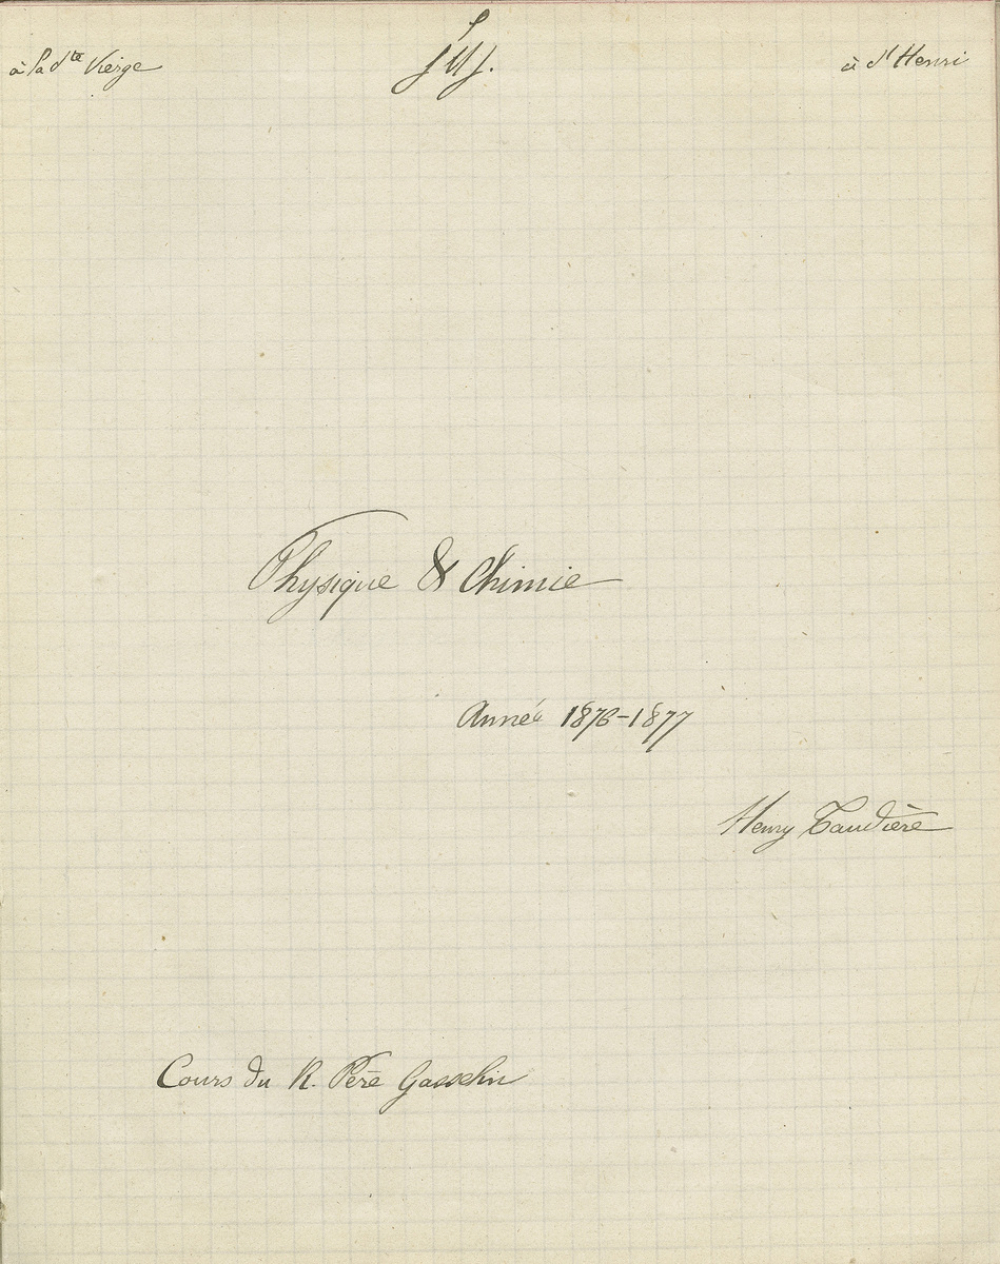 à la Ste Vierge
JMJ.
à St Henri
Physique & Chimie
Année 1876-1877
Henry Taudière
Cours du R. Père Gosselin